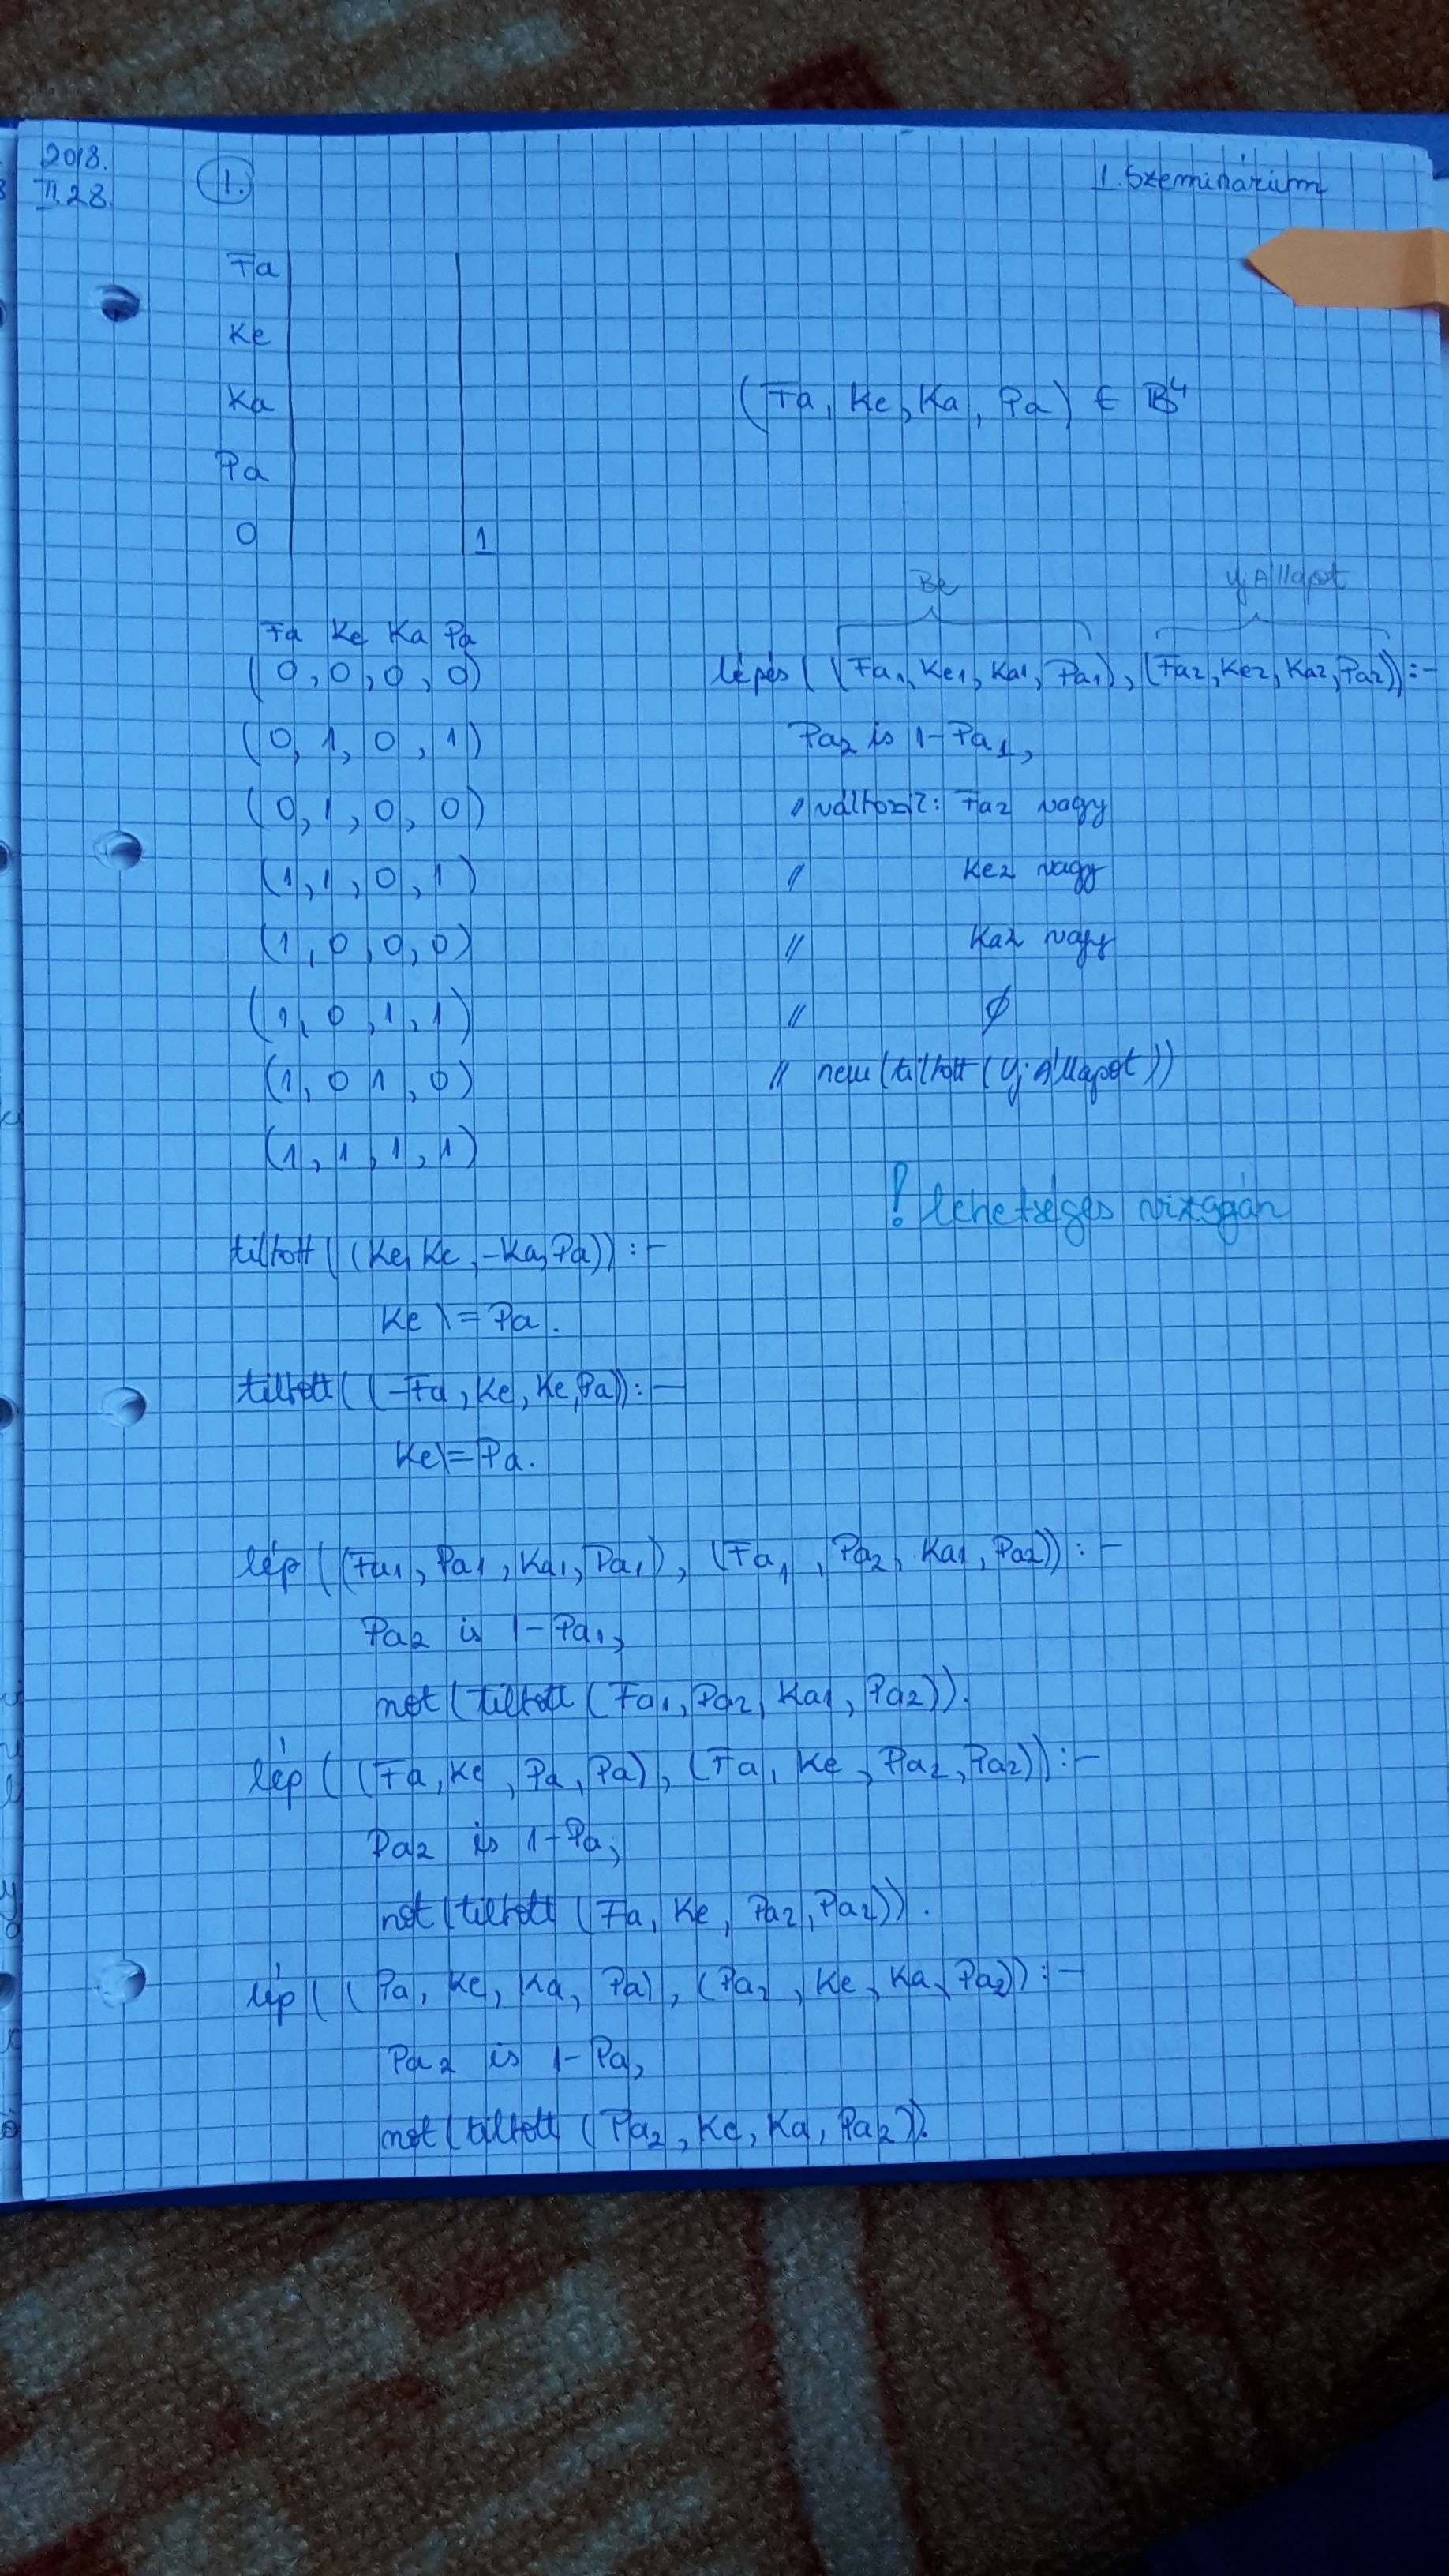 2018.
II.28.
1.
1. Szeminárium
Fa
Ke
Ka
(Fa, Ke, Ka, Pa) ∈ B⁴
Pa
0 1
Be
Új Állapot
Fa Ke Ka Pa
(0,0,0,0)
(0,1,0,1)
(0,1,0,0)
(1,1,0,1)
(1,0,0,0)
(1,0,1,1)
(1,0,1,0)
(1,1,1,1)
lépés((Fa1, Ke1, Ka1, Pa1), (Fa2, Ke2, Ka2, Pa2)):-
Pa2 is 1-Pa1,
// változik: Fa2 vagy
// Ke2 vagy
// Ka2 vagy
// ∅
// nem(tiltott(ÚjÁllapot))
! lehetséges vizsgán
tiltott((Ke, Ke, -Ka, Pa)):-
Ke \= Pa.
tiltott((-Fa, Ke, Ke, Pa)):-
Ke \= Pa.
lép((Fa1, Pa1, Ka1, Pa1), (Fa1, Pa2, Ka1, Pa2)):-
Pa2 is 1-Pa1,
not(tiltott(Fa1, Pa2, Ka1, Pa2)).
lép((Fa, Ke, Pa, Pa), (Fa, Ke, Pa2, Pa2)):-
Pa2 is 1-Pa,
not(tiltott(Fa, Ke, Pa2, Pa2)).
lép((Pa, Ke, Ka, Pa), (Pa2, Ke, Ka, Pa2)):-
Pa2 is 1-Pa,
not(tiltott(Pa2, Ke, Ka, Pa2)).